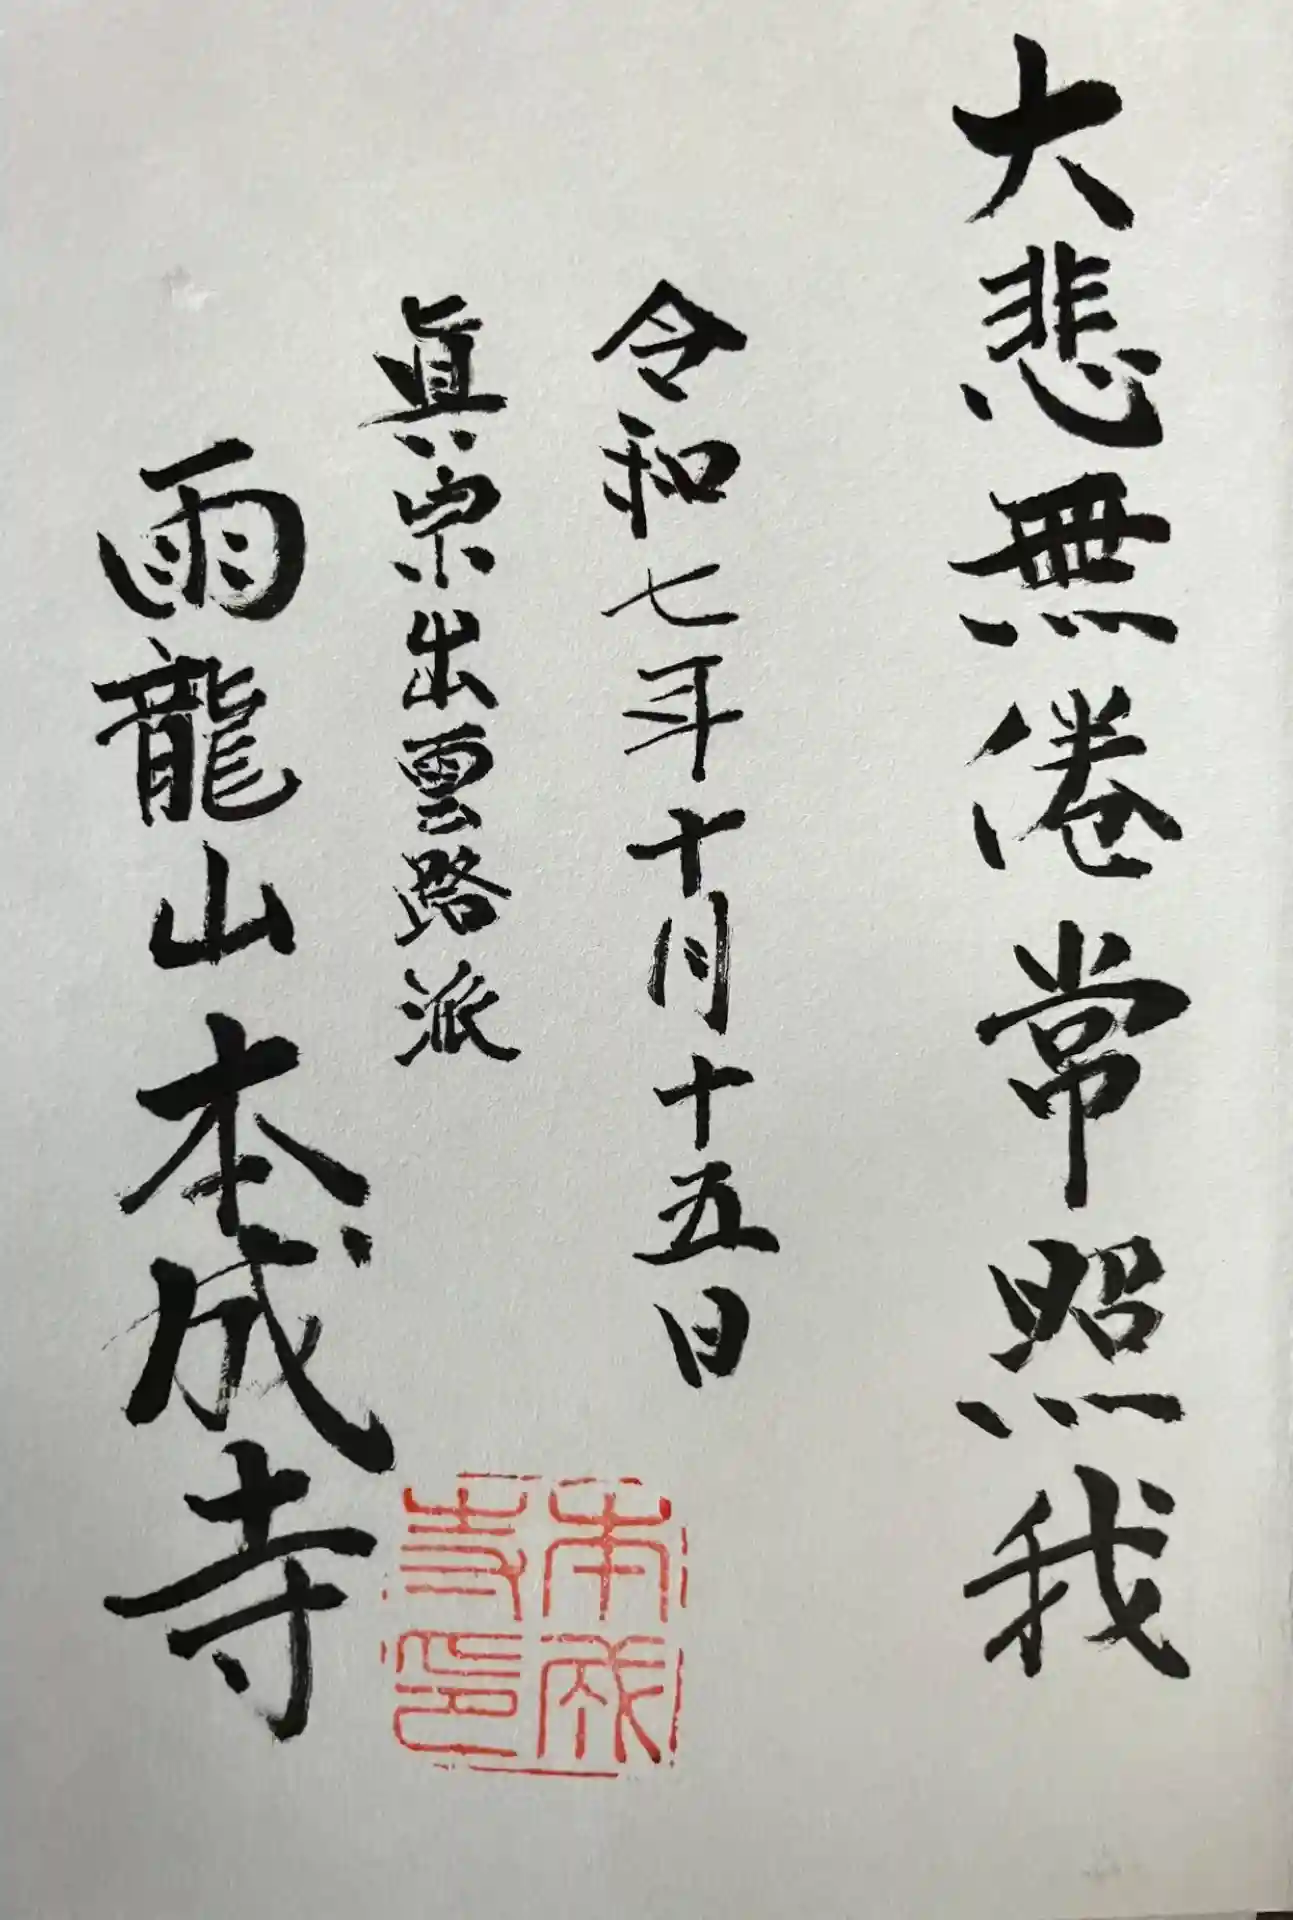 大悲無倦常照我
令和七年十月十五日
眞宗出雲路派
雨龍山本成寺
本成寺印